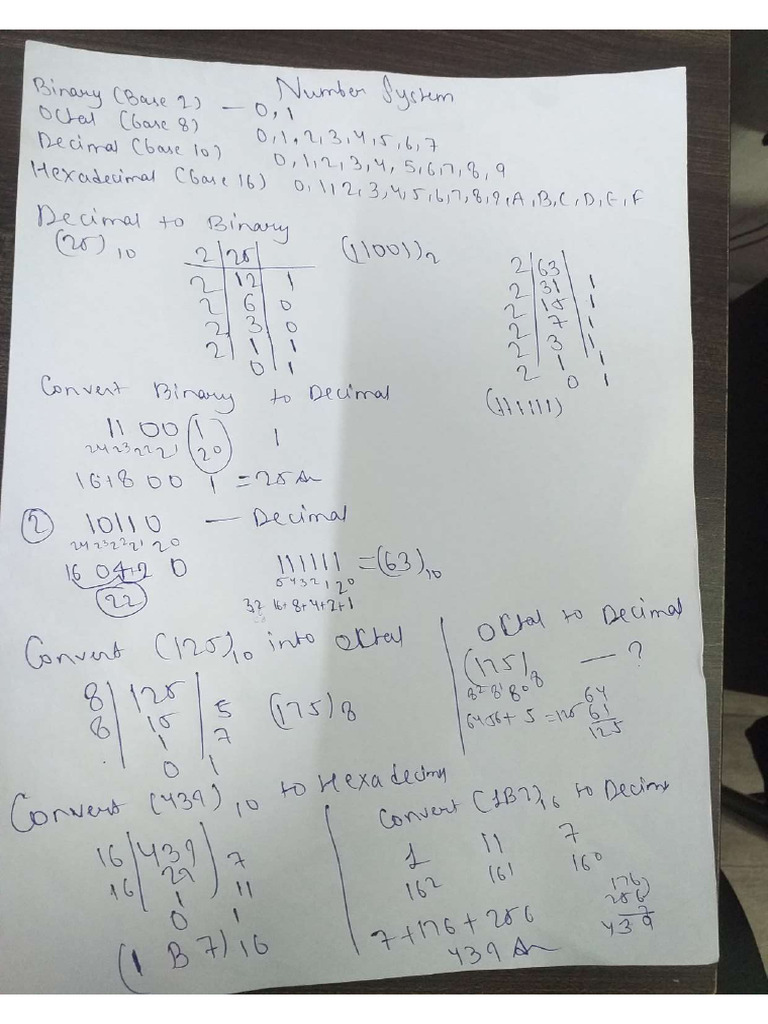 Number System
Binary (Base 2) — 0, 1
Octal (base 8) 0,1,2,3,4,5,6,7
Decimal (base 10) 0,1,2,3,4,5,6,7,8,9
Hexadecimal (base 16) 0,1,2,3,4,5,6,7,8,9,A,B,C,D,E,F
Decimal to Binary
(25)10
2 | 25
2 | 12 | 1
2 | 6 | 0
2 | 3 | 0
2 | 1 | 1
0 | 1
(11001)2
2 | 63
2 | 31 | 1
2 | 15 | 1
2 | 7 | 1
2 | 3 | 1
2 | 1 | 1
0 1
(111111)
Convert Binary to Decimal
11 00 1 1
24 23 22 21 20
16+8 0 0 1 = 25 Ans
2 10110 — Decimal
24 23 22 21 20
16 0 4+2 0
22
111111 = (63)10
5 4 3 2 1 20
32 16+8+4+2+1
Convert (125)10 into octal
8 | 125 | 5
8 | 15 | 7
1
0 | 1
(175)8
Octal to Decimal
(175)8 — ?
82 81 80
64 56+ 5 = 125
64
61
125
Convert (439)10 to Hexadecim
16 | 439 | 7
16 | 27 | 11
1
0 1
(1 B 7)16
Convert (1B7)16 to Decim
1 11 7
162 161 160
7+176+256
439 Ans
176
256
7
439